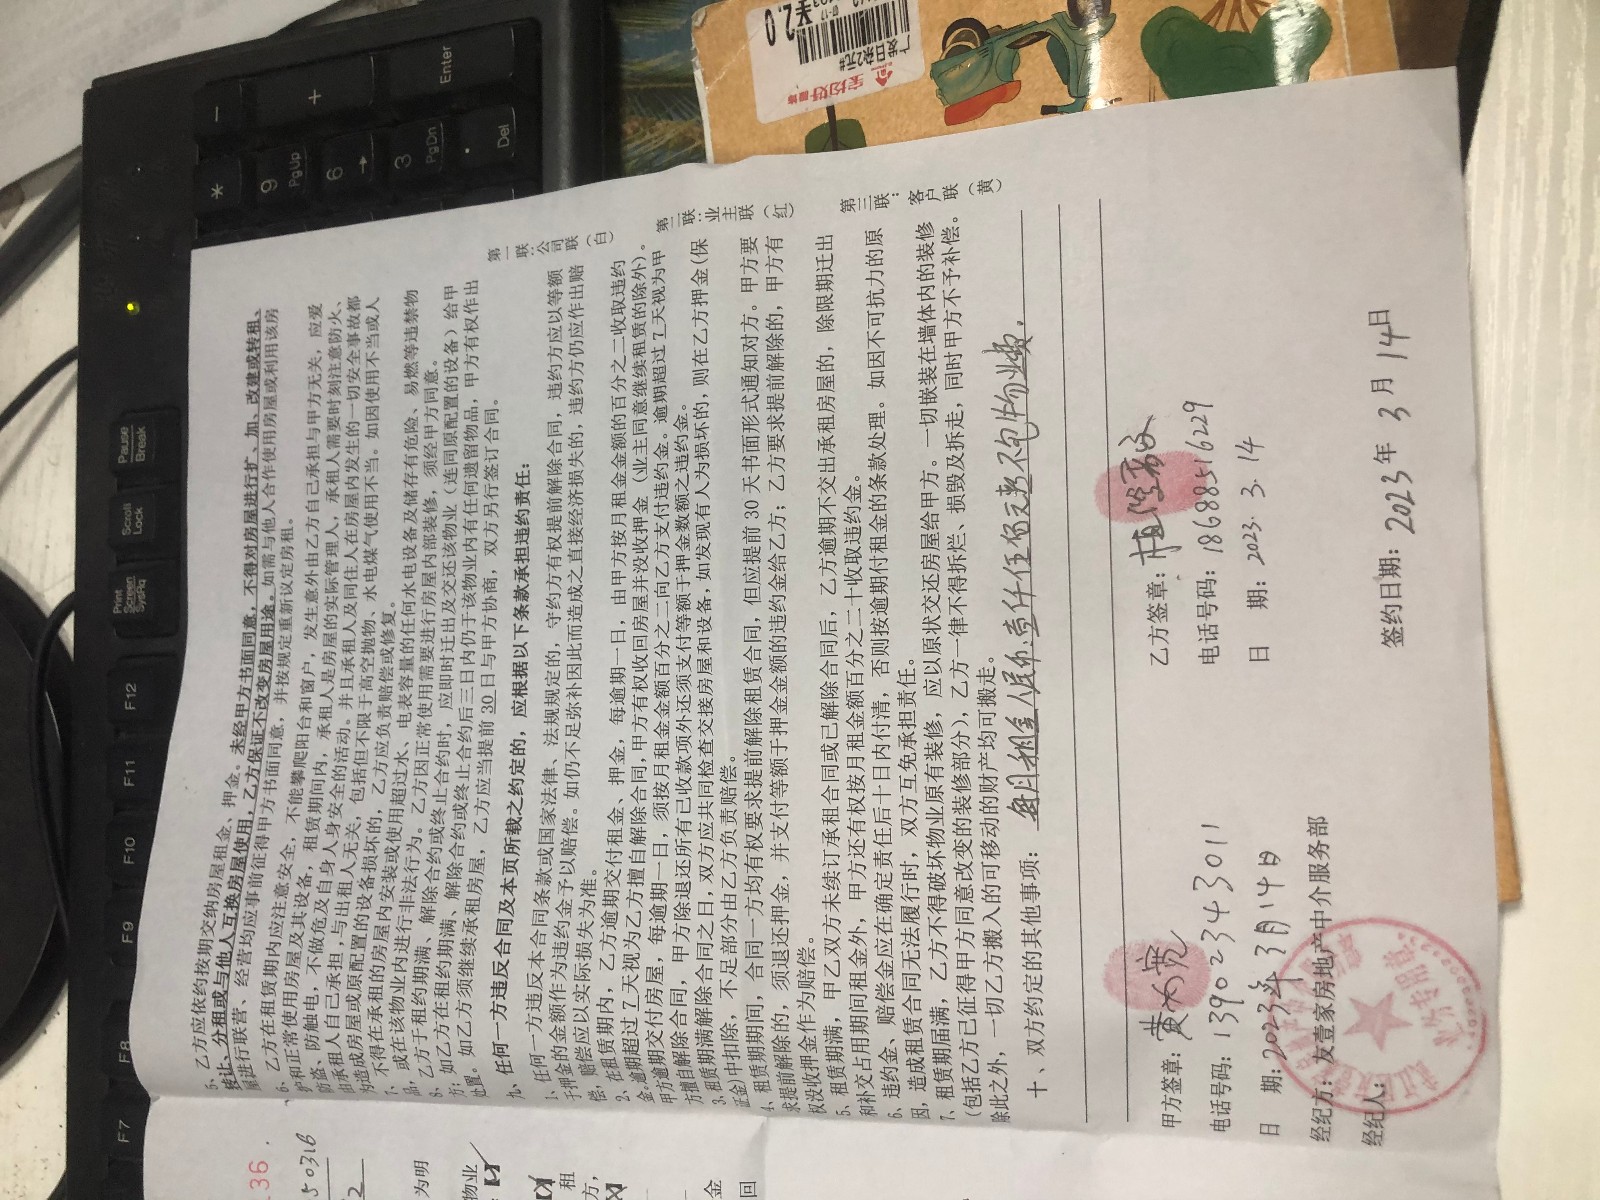 5、乙方应依约按期交纳房屋租金、押金。未经甲方书面同意，不得对房屋进行扩、加、改建或转租、
转让、分租或与他人互换房屋使用，乙方保证不改变房屋用途。如需与他人合作使用房屋或利用该房
屋进行联营、经营均应事前征得甲方书面同意，并按规定重新议定房租。
6、乙方在租赁期内应注意安全，不能攀爬阳台和窗户，发生意外由乙方自己承担与甲方无关，应爱
护和正常使用房屋及其设备，租赁期间内，承租人是房屋的实际管理人，承租人需要时刻注意防火、
防盗、防触电，不做危及自身人身安全的活动。并且承租人及同住人在房屋内发生的一切安全事故都
由承租人自己承担，与出租人无关，包括但不限于高空抛物、水电煤气使用不当。如因使用不当或人
为造成房屋或原配置的设备损坏的，乙方应负责赔偿或修复。
7、不得在承租的房屋内安装或使用超过水、电表容量的任何水电设备及储存有危险、易燃等违禁物
品，或在该物业内进行非法行为。乙方因正常使用需要进行房屋内部装修，须经甲方同意。
8、乙方于租约期满、解除合约或终止合约时，应即时迁出及交还该物业（连同原配置的设备）给甲
方；如乙方在租约期满、解除合约或终止合约后三日内仍于该物业内有任何遗留物品，甲方有权作出
处置。如乙方须继续承租房屋，乙方应当提前 30 日与甲方协商，双方另行签订合同。
九、任何一方违反合同及本页所载之约定的，应根据以下条款承担违约责任：
1、任何一方违反本合同条款或国家法律、法规规定的，守约方有权提前解除合同，违约方应以等额
于押金的金额作为违约金予以赔偿。如仍不足弥补因此而造成之直接经济损失的，违约方仍应作出赔
偿，赔偿应以实际损失为准。
2、在租赁期内，乙方逾期交付租金、押金，每逾期一日，由甲方按月租金金额的百分之二收取违约
金。逾期超过 7 天视为乙方擅自解除合同，甲方有权收回房屋并没收押金（业主同意继续租赁的除外）。
甲方逾期交付房屋，每逾期一日，须按月租金金额百分之二向乙方支付违约金。逾期超过 7 天视为甲
方擅自解除合同，甲方除退还所有已收款项外还须支付等额于押金数额之违约金。
3、租赁期满解除合同之日，双方应共同检查交接房屋和设备，如发现有人为损坏的，则在乙方押金（保
证金）中扣除，不足部分由乙方负责赔偿。
4、租赁期期间，合同一方均有权要求提前解除租赁合同，但应提前 30 天书面形式通知对方。甲方要
求提前解除的，须退还押金，并支付等额于押金金额的违约金给乙方；乙方要求提前解除的，甲方有
权没收押金作为赔偿。
5、租赁期满，甲乙双方未续订承租合同或已解除合同后，乙方逾期不交出承租房屋的，除限期迁出
和补交占用期间租金外，甲方还有权按月租金额百分之二十收取违约金。
6、违约金、赔偿金应在确定责任后十日内付清，否则按逾期付租金的条款处理。如因不可抗力的原
因，造成租赁合同无法履行时，双方互免承担责任。
7、租赁期届满，乙方不得破坏物业原有装修，应以原状交还房屋给甲方。一切嵌装在墙体内的装修
（包括乙方已征得甲方同意改变的装修部分），乙方一律不得拆烂、损毁及拆走，同时甲方不予补偿。
除此之外，一切乙方搬入的可移动的财产均可搬走。
十、双方约定的其他事项：每月租金人民币壹仟任佰元整不包物业费.
第一联：公司联（白）
第二联：业主联（红）
第三联：客户联（黄）
甲方签章：
电话号码：13902343011
日 期：2023年3月14日
经纪方：友壹家房地产中介服务部
经纪人：
乙方签章：
电话号码：18688516229
日 期：2023.3.14
签约日期：2023年3月14日
136.
5031b
2
为明
物业
租
方，
金
回
Print Screen SysRq
Scroll Lock
Pause Break
F7
F8
F9
F10
F11
F12
*
-
9 PgUp
+
6 →
3 PgDn
Enter
. Del
2.0